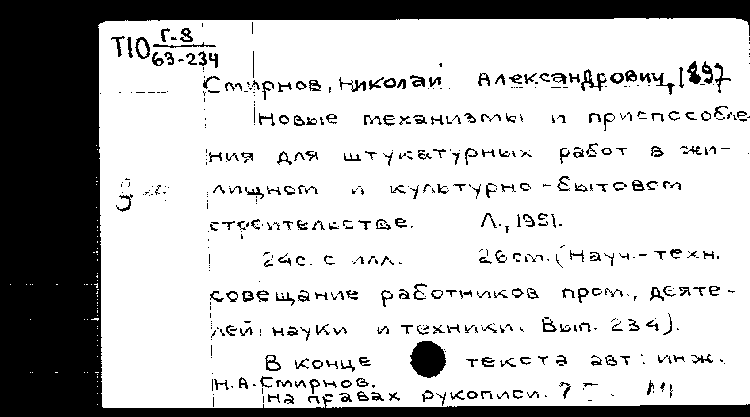 Т10 Г-8
63-234
Смирнов, Николай Александрович, 1897
Новые механизмы и приспособле
ния для штукатурных работ в жи-
лищном и культурно-бытовом
строительстве. Л., 1951.
24с. с илл. 26см. (Науч.-техн.
совещание работников пром., деяте-
лей науки и техники. Вып. 234).
В конце текста авт: инж.
Н.А. Смирнов.
На правах рукописи.